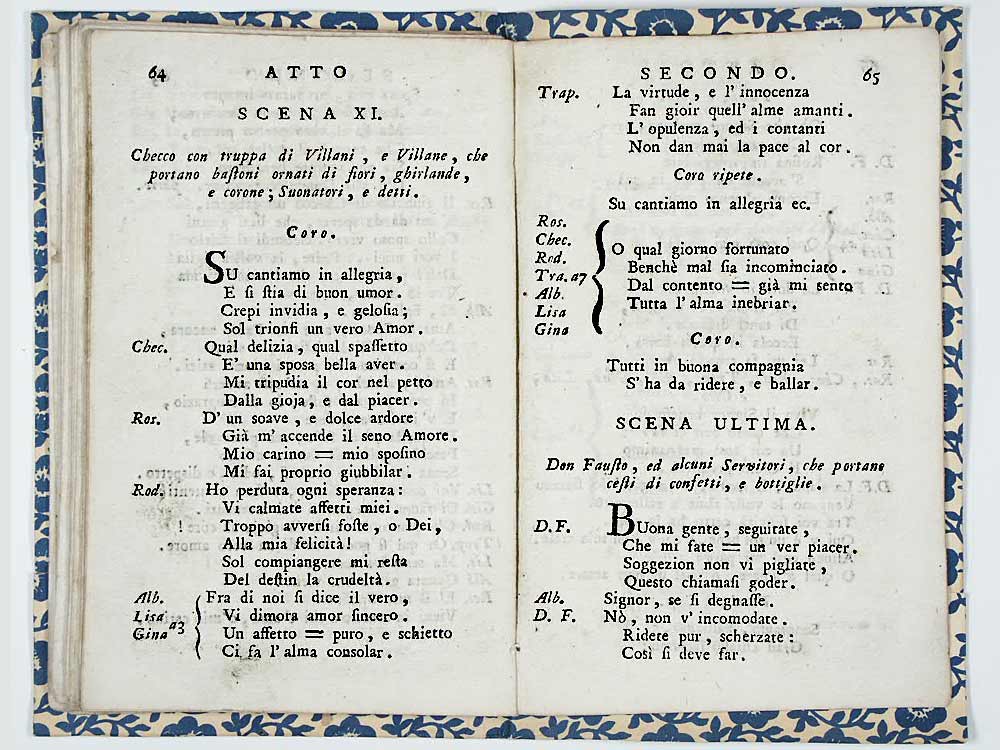 64 ATTO
SCENA XI.
Checco con truppa di Villani, e Villane, che
portano baſtoni ornati di fiori, ghirlande,
e corone; Suonatori, e detti.
Coro.
SU cantiamo in allegria,
E ſi ſtia di buon umor.
Crepi invidia, e geloſia;
Sol trionfi un vero Amor.
Chec. Qual delizia, qual ſpaſſetto
E' una ſpoſa bella aver.
Mi tripudia il cor nel petto
Dalla gioja, e dal piacer.
Ros. D' un soave, e dolce ardore
Già m' accende il seno Amore.
Mio carino = mio ſpoſino
Mi fai proprio giubbilar.
Rod. Ho perduta ogni speranza:
Vi calmate affetti miei.
Troppo avverſi foſte, o Dei,
Alla mia felicità!
Sol compiangere mi reſta
Del deſtin la crudeltà.
Alb. Fra di noi ſi dice il vero,
Lisa Vi dimora amor ſincero.
Gina a3 Un affetto = puro, e schietto
Ci fa l' alma consolar.
SECONDO. 65
Trap. La virtude, e l' innocenza
Fan gioir quell' alme amanti.
L' opulenza, ed i contanti
Non dan mai la pace al cor.
Coro ripete.
Su cantiamo in allegria ec.
Ros.
Chec. O qual giorno fortunato
Rod. Benchè mal ſia incominciato.
Tra. a7 Dal contento = già mi sento
Alb. Tutta l' alma inebriar.
Lisa
Gina
Coro.
Tutti in buona compagnia
S' ha da ridere, e ballar.
SCENA ULTIMA.
Don Fauſto, ed alcuni Servitori, che portano
ceſti di confetti, e bottiglie.
D.F. BUona gente, seguitate,
Che mi fate = un ver piacer.
Soggezion non vi pigliate,
Queſto chiamaſi goder.
Alb. Signor, se ſi degnaſſe.
D. F. Nò, non v' incomodate.
Ridete pur, scherzate:
Così ſi deve far.